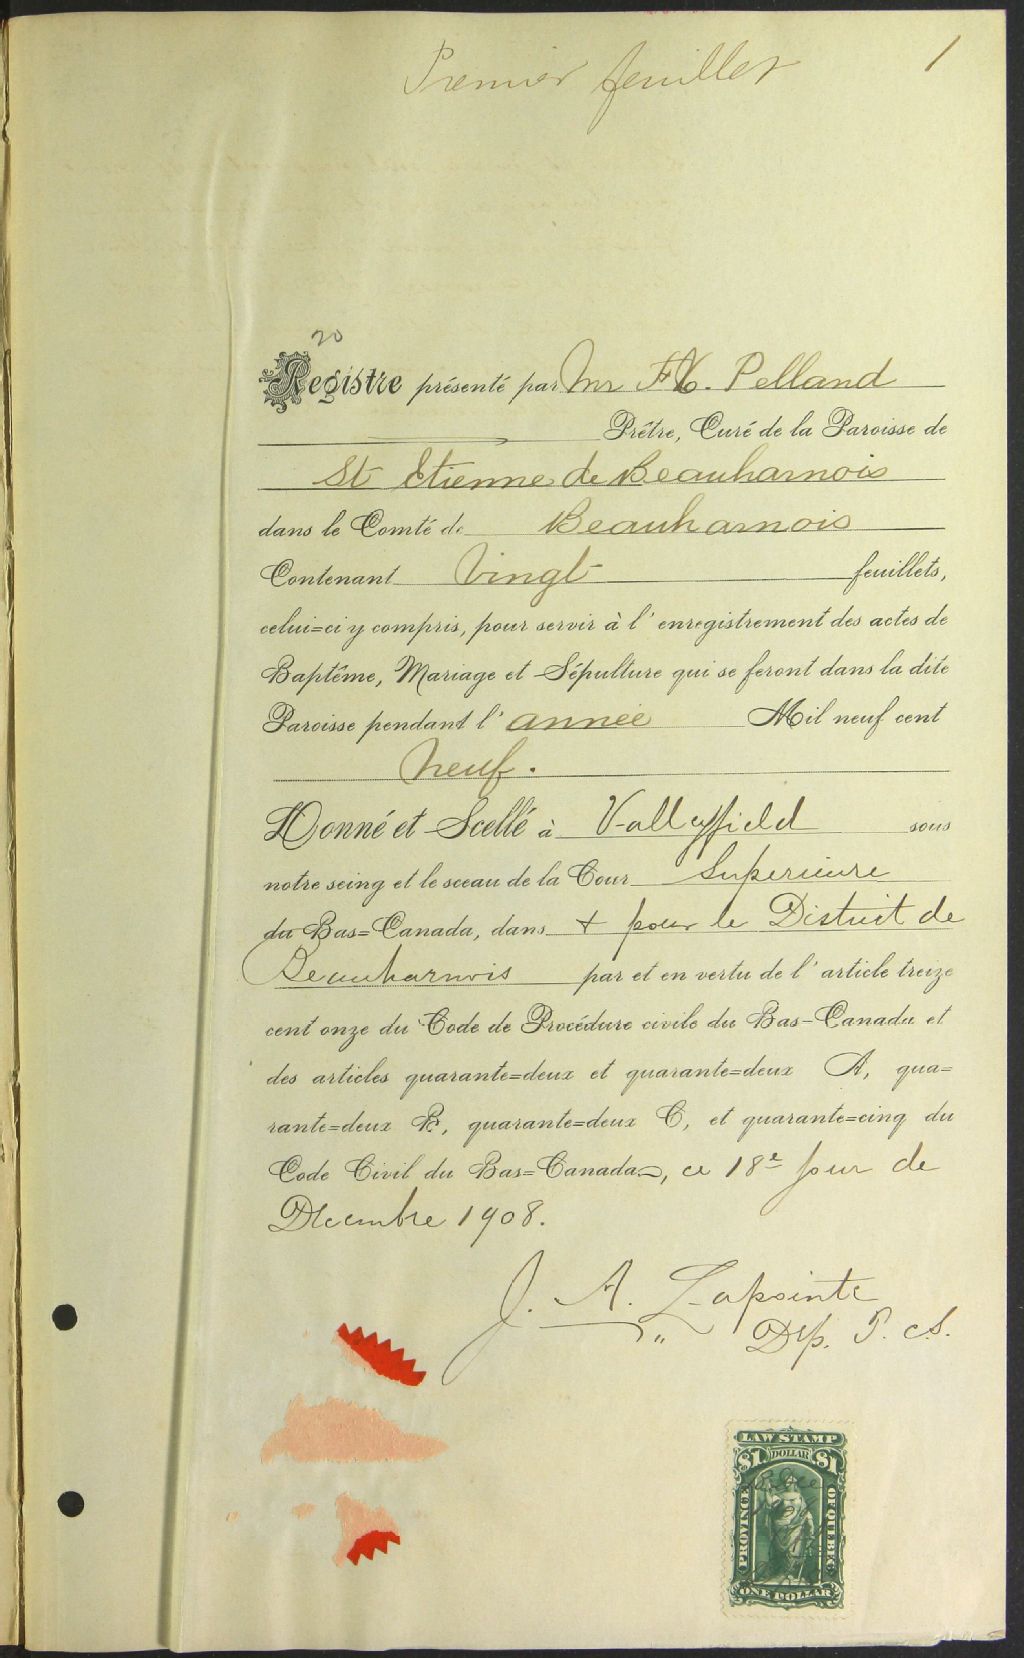 Premier feuillet 1
20
Registre présenté par Mr F. X. Pelland
Prêtre, Curé de la Paroisse de
St Etienne de Beauharnois
dans le Comté de Beauharnois
Contenant Vingt feuillets,
celui=ci y compris, pour servir à l'enregistrement des actes de
Baptême, Mariage et Sépulture qui se feront dans la dite
Paroisse pendant l'année Mil neuf cent
Neuf.
Donné et Scellé à Valleyfield sous
notre seing et le sceau de la Cour Superieure
du Bas=Canada, dans & pour le District de
Beauharnois par et en vertu de l'article treize
cent onze du Code de Procédure civile du Bas-Canada et
des articles quarante=deux et quarante=deux A, qua=
rante=deux B, quarante=deux C, et quarante=cinq du
Code Civil du Bas=Canada, ce 18e jour de
Décembre 1908.
J. A. Lapointe
Dep. P. C. S.
LAW STAMP
$1 DOLLAR $1
PROVINCE OF QUEBEC
ONE DOLLAR